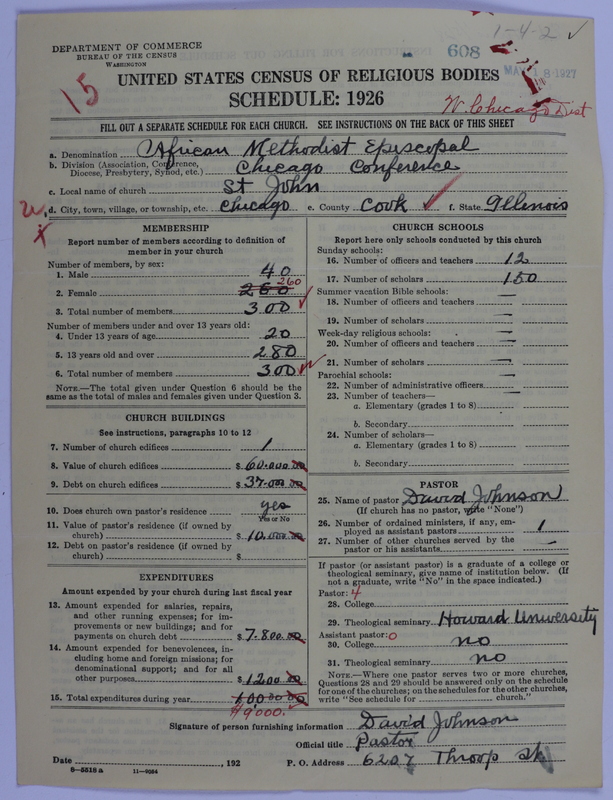 1-4-2 ✓
DEPARTMENT OF COMMERCE
BUREAU OF THE CENSUS
WASHINGTON
608
MAY 18 1927
15
UNITED STATES CENSUS OF RELIGIOUS BODIES
SCHEDULE: 1926
W. Chicago Dist
FILL OUT A SEPARATE SCHEDULE FOR EACH CHURCH. SEE INSTRUCTIONS ON THE BACK OF THIS SHEET
a. Denomination African Methodist Episcopal
b. Division (Association, Conference, Diocese, Presbytery, Synod, etc.) Chicago Conference
c. Local name of church St John
W. d. City, town, village, or township, etc. Chicago e. County Cook ✓ f. State Illinois
x
MEMBERSHIP
Report number of members according to definition of
member in your church
Number of members, by sex:
1. Male 40
2. Female 260 260
3. Total number of members 300 ✓
Number of members under and over 13 years old:
4. Under 13 years of age 20
5. 13 years old and over 280
6. Total number of members 300 ✓
NOTE.—The total given under Question 6 should be the
same as the total of males and females given under Question 3.
CHURCH BUILDINGS
See instructions, paragraphs 10 to 12
7. Number of church edifices 1
8. Value of church edifices $ 60.000.00
9. Debt on church edifices $ 37.000.00
10. Does church own pastor's residence yes
Yes or No
11. Value of pastor's residence (if owned by
church) $ 10.000.00
12. Debt on pastor's residence (if owned by
church) $
EXPENDITURES
Amount expended by your church during last fiscal year
13. Amount expended for salaries, repairs,
and other running expenses; for im-
provements or new buildings; and for
payments on church debt $ 7.800.00
14. Amount expended for benevolences, in-
cluding home and foreign missions; for
denominational support; and for all
other purposes $ 1200.00
15. Total expenditures during year 10000.00
$9000.
CHURCH SCHOOLS
Report here only schools conducted by this church
Sunday schools:
16. Number of officers and teachers 12
17. Number of scholars 150
Summer vacation Bible schools:
18. Number of officers and teachers —
19. Number of scholars —
Week-day religious schools:
20. Number of officers and teachers —
21. Number of scholars —
Parochial schools:
22. Number of administrative officers —
23. Number of teachers—
a. Elementary (grades 1 to 8)
b. Secondary
24. Number of scholars—
a. Elementary (grades 1 to 8)
b. Secondary
PASTOR
25. Name of pastor David Johnson
(If church has no pastor, write "None")
26. Number of ordained ministers, if any, em-
ployed as assistant pastors 1
27. Number of other churches served by the
pastor or his assistants —
If pastor (or assistant pastor) is a graduate of a college or
theological seminary, give name of institution below. (If
not a graduate, write "No" in the space indicated.)
Pastor: 4
28. College
29. Theological seminary Howard University
Assistant pastor: 0
30. College no
31. Theological seminary no
NOTE.—Where one pastor serves two or more churches,
Questions 28 and 29 should be answered only on the schedule
for one of the churches; on the schedules for the other churches,
write "See schedule for church."
Signature of person furnishing information David Johnson
Official title Pastor
Date , 192 P. O. Address 6207 Throop St
8—5518 a 11—9064